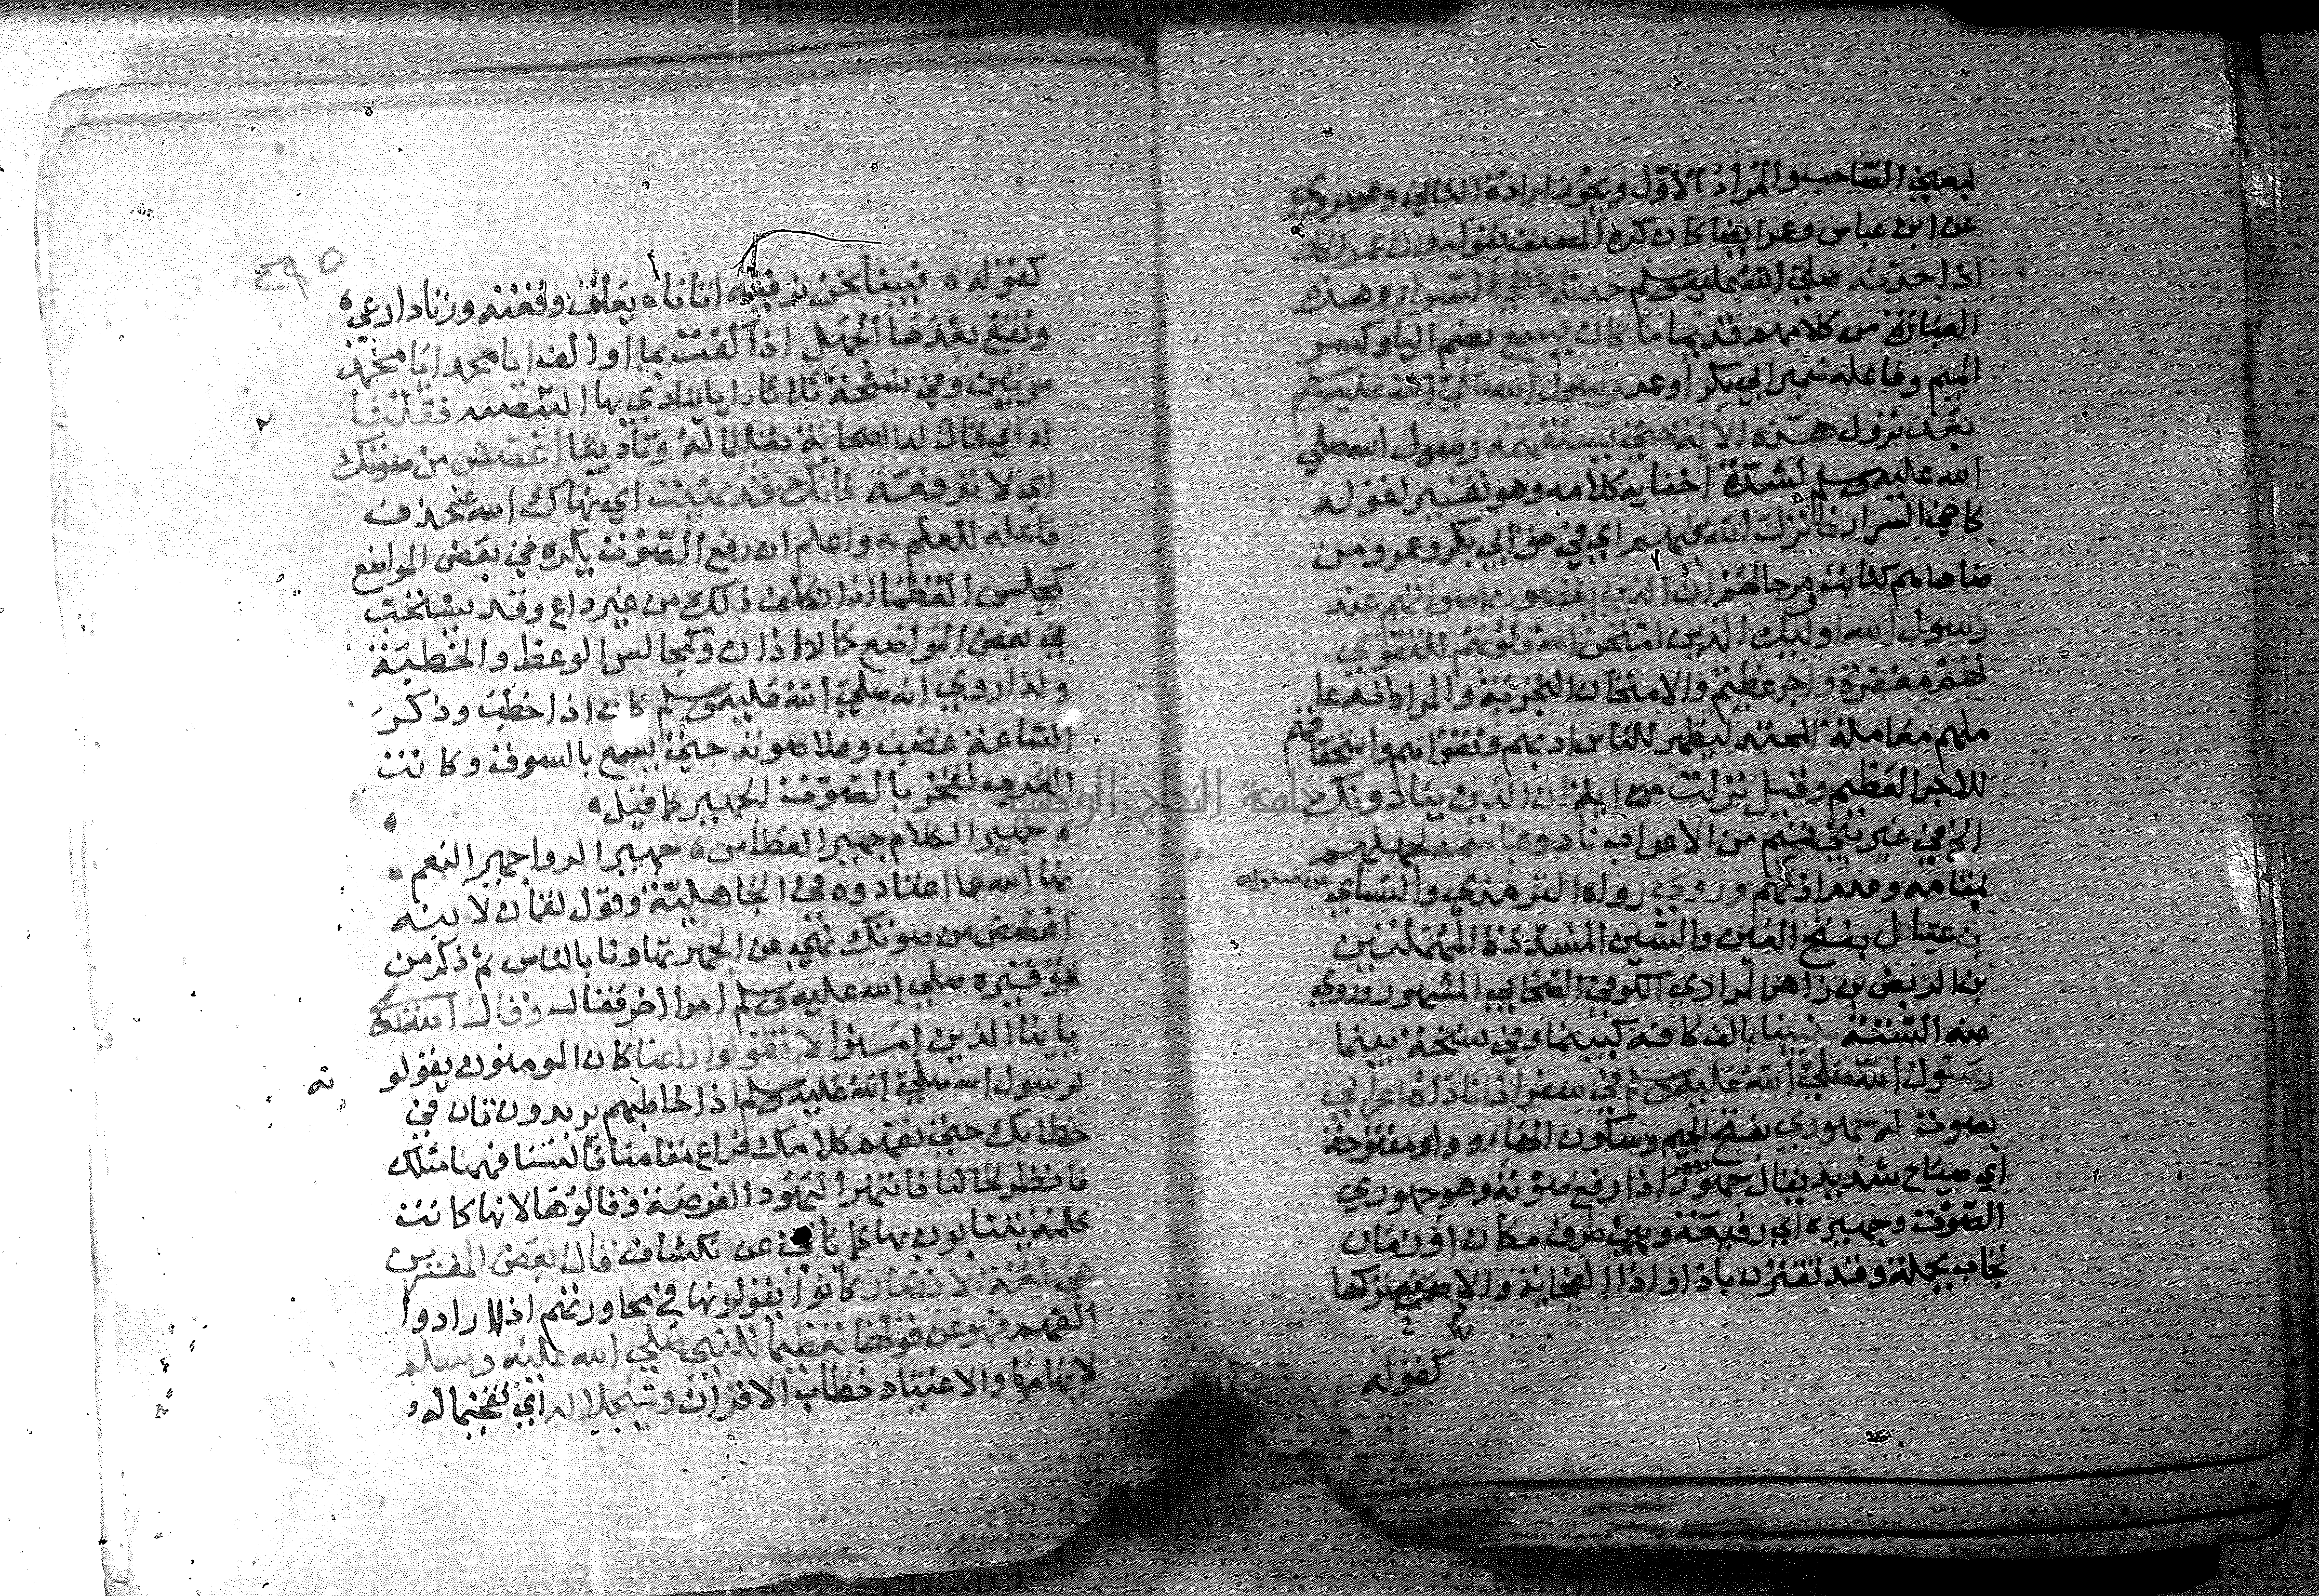 بمعني الصّاحب والمُرادُ الاوّل ويجُوز ارادة الثاني وهو مروي
عن ابن عباس وعمر ايضا كان كره المصنف بقوله وان عمر كان
اذا حدثه صلي اللهُ عليه وسلم حدثه كاخي السّرار وهذه
العبَارَة من كلامهم قديما ما كان يسمع بضم اليا وكسر
الميم وفاعله ضمير ابي بكر او عمر رسول الله صَلي الله عَليه وسلم
بَعْد نزول هذه الايَة حَتي يستفهمَه رسول الله صلي
الله عليه وسلم لشدّة اخفايه كلامه وهو تفسير لقوله
كاخي السّرار فانزل الله فيهم اي في حق ابي بكر وعمر ومن
ضاهاهم كثابت ومرحا لهُم ان الذين يغضون اصواتهم عند
رسول الله اوليك الذين امتحن الله قلوبَهُم للتقوي
لهُم مغفرة واجر عظيم والامتحان التجربَة والمراد انه عا
ملهم معَاملة المحتبد ليظهر للناس ادبهم وتقواهم واستحقاقهم
للاجر العَظيم وقيل نزلت من اية ان الذين ينادونك
الخ في غير بَني تميم من الاعراب نادوه باسمه لجهلهم
بمقامه وعدم ادبهم وروي رواه الترمذي والنسَاي عن صفوان
بن عسَال بفتح العَين والسّين المشددَة المُهْمَلتين
بن الربض بن زاهر المرادي الكوفي الصّحابي المشهور وروي
عنه السّتة بَينا بالف كافه كبينما وفي نسْخة بينما
رسُول الله صَليّ اللهُ عَليه وسلم في سفر اذ نادَاه اعرابي
بصَوت له جهوري بفتح الجيم وسكون الهاء وواو مفتوحة
اي صياح شديد يقال جهور اذا رفع صَوْته وهو جهوري
الصّوْت وجهيره اي رفيعَه وبين ظرف مكان او زمَان
يجاب بجملة وقد تقترن باذ او اذا الفجائية والافصَح تركها
كقوله
٢٩٥
كقوله، فبينا نحن نرقبه اتانا، يعَلق وفضَة وزناد ارعي،
وتقع بعْدهَا الجُمَل اذا كفّت بما او الف ايا محمد ايا محمّد
مرتين وفي نسْخة ثلاثا ايا ينادي بها البَعيد فقُلْنا
له اي قال له الصّحابَة تعْليمًا لهُ وتأديبًا اغضض من صوتك
اي لا ترفعْه فانك قد نهيت اي نهاك الله عنه فحذف
فاعله للعلم به واعلم ان رفع الصَّوْت يكره في بعَض المواضع
كمجلس العُظمَا اذا تكلف ذلك من غير داع وقد يستحب
في بعَض المَوَاضع كالااذان وكمجالس الوعظ والخطبَة
ولذا روي انه صَلي اللهُ عَليه وسلم كان اذا خطبَ وذكرَ
السّاعة غضبَ وعلا صوته حتي يسمع بالسوق وكانت
العَرب تفخر بالصّوت الجهير كما قيل،
، جَهير الكلام جهير العطاس، جهير الروا جهير النعم،
نها الله عما اعتادوه في الجاهليّة وقول لقمان لابنه
اغضض من صوتك نهي عن الجهر تهاونا بالناس ثم ذكر من
توقيره صلي الله عليه وسلم امرا اخر فقال وقال الله تعَالي
يا يهَا الذين امنوا لا تقولوا راعنا كان المومنون يقولو
نه
لرسول الله صَلي اللهُ عَليه وسلم اذا خاطبهم يريدون تان في
خطابك حتي نفهم كلامك فراع مقامنا فالسْنا فهما مثلك
فانظر لحَالنا فانتهز اليَهُود الفرصَة وقالوْهَا لانها كانت
كلمة يتسَابون بها كما ياتي عن الكشاف قال بعَض المفسّرين
هي لغة الانصَار كانوا يقولونها في محاورتهم اذا ارادوا
الفهم فنهو عن قولها تعظيما للنبي صَلي الله عليه وسلم
لايهَامهَا والاعتيَاد خطاب الاقران وتبجيلا له اي تفخيما له و
جامعة النجاح الوطنية